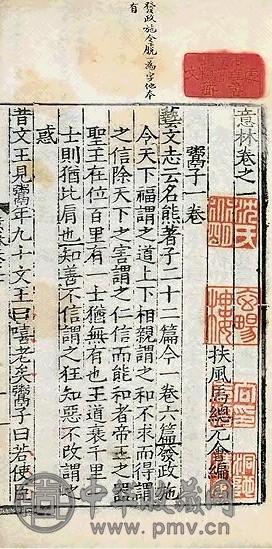 發政施令脫為字他本
有
意林卷之一
扶風馬總元會編
鬻子一卷
藝文志云名熊著子二十二篇今一卷六篇發政施
令天下福謂之道上下相親謂之和不求而得謂
之信除天下之害謂之仁信而能和者帝王之器
聖王在位百里有一士猶無有也王道衰千里
士則猶比肩也知善不信謂之狂知惡不改謂之
惑
昔文王見鬻年九十文王曰嘻老矣鬻子曰若使臣
中華收藏网
www.pmv.cn